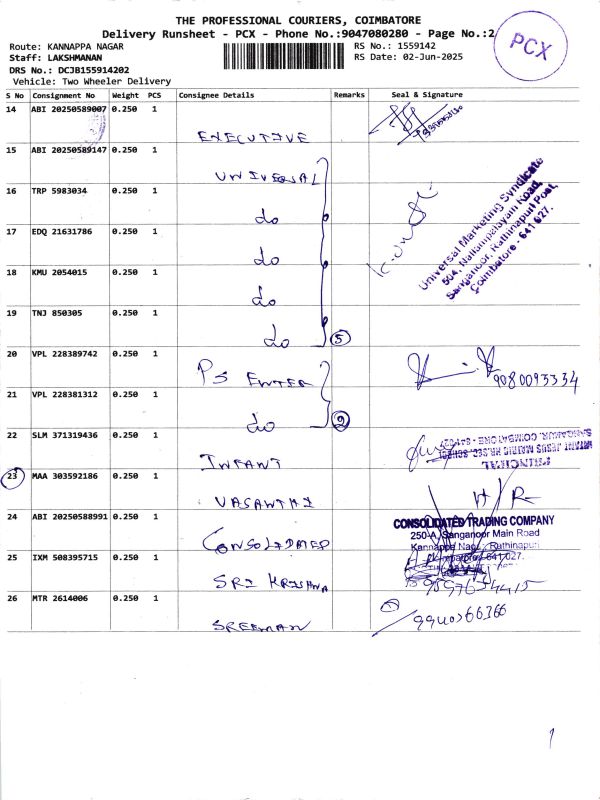 THE PROFESSIONAL COURIERS, COIMBATORE
Delivery Runsheet - PCX - Phone No.:9047080280 - Page No.:2
PCX
Route: KANNAPPA NAGAR
RS No.: 1559142
Staff: LAKSHMANAN
RS Date: 02-Jun-2025
DRS No.: DCJB155914202
Vehicle: Two Wheeler Delivery
S No Consignment No Weight PCS Consignee Details Remarks Seal & Signature
14 ABI 20250589007 0.250 1
EXECUTIVE
15 ABI 20250589147 0.250 1
UNIVERSAL
16 TRP 5983034 0.250 1
do
17 EDQ 21631786 0.250 1
do
18 KMU 2054015 0.250 1
do
19 TNJ 850305 0.250 1
do 5
Universal Marketing Syndicate
504, Nallampalayam Road,
Sanganoor, Rathinapuri Post,
Coimbatore - 641 027.
20 VPL 228389742 0.250 1
PS ENTER
9080093334
21 VPL 228381312 0.250 1
do 2
22 SLM 371319436 0.250 1
INFANT
PRINCIPAL
INFANT JESUS MATRIC HR.SEC.SCHOOL
SANGANUR, COIMBATORE - 641 027
23 MAA 303592186 0.250 1
VASANTHI
H/R
24 ABI 20250588991 0.250 1
CONSOLIDATED
CONSOLIDATED TRADING COMPANY
250-A, Sanganoor Main Road
Kannappa Nagar, Rathinapuri
Coimbatore - 641 027.
25 IXM 508395715 0.250 1
SRI KRISHNA
26 MTR 2614006 0.250 1
SREEMAN
9940366366
1